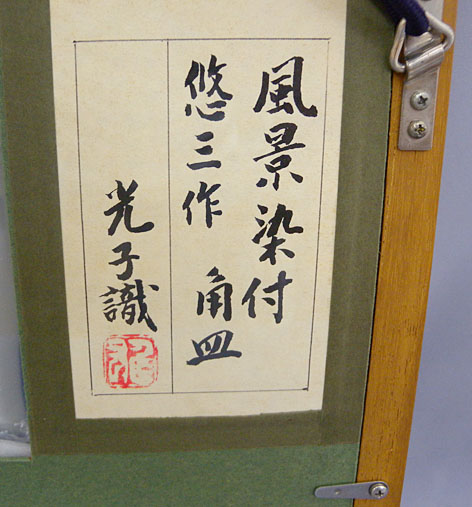 風景染付
悠三作 角皿
光子識